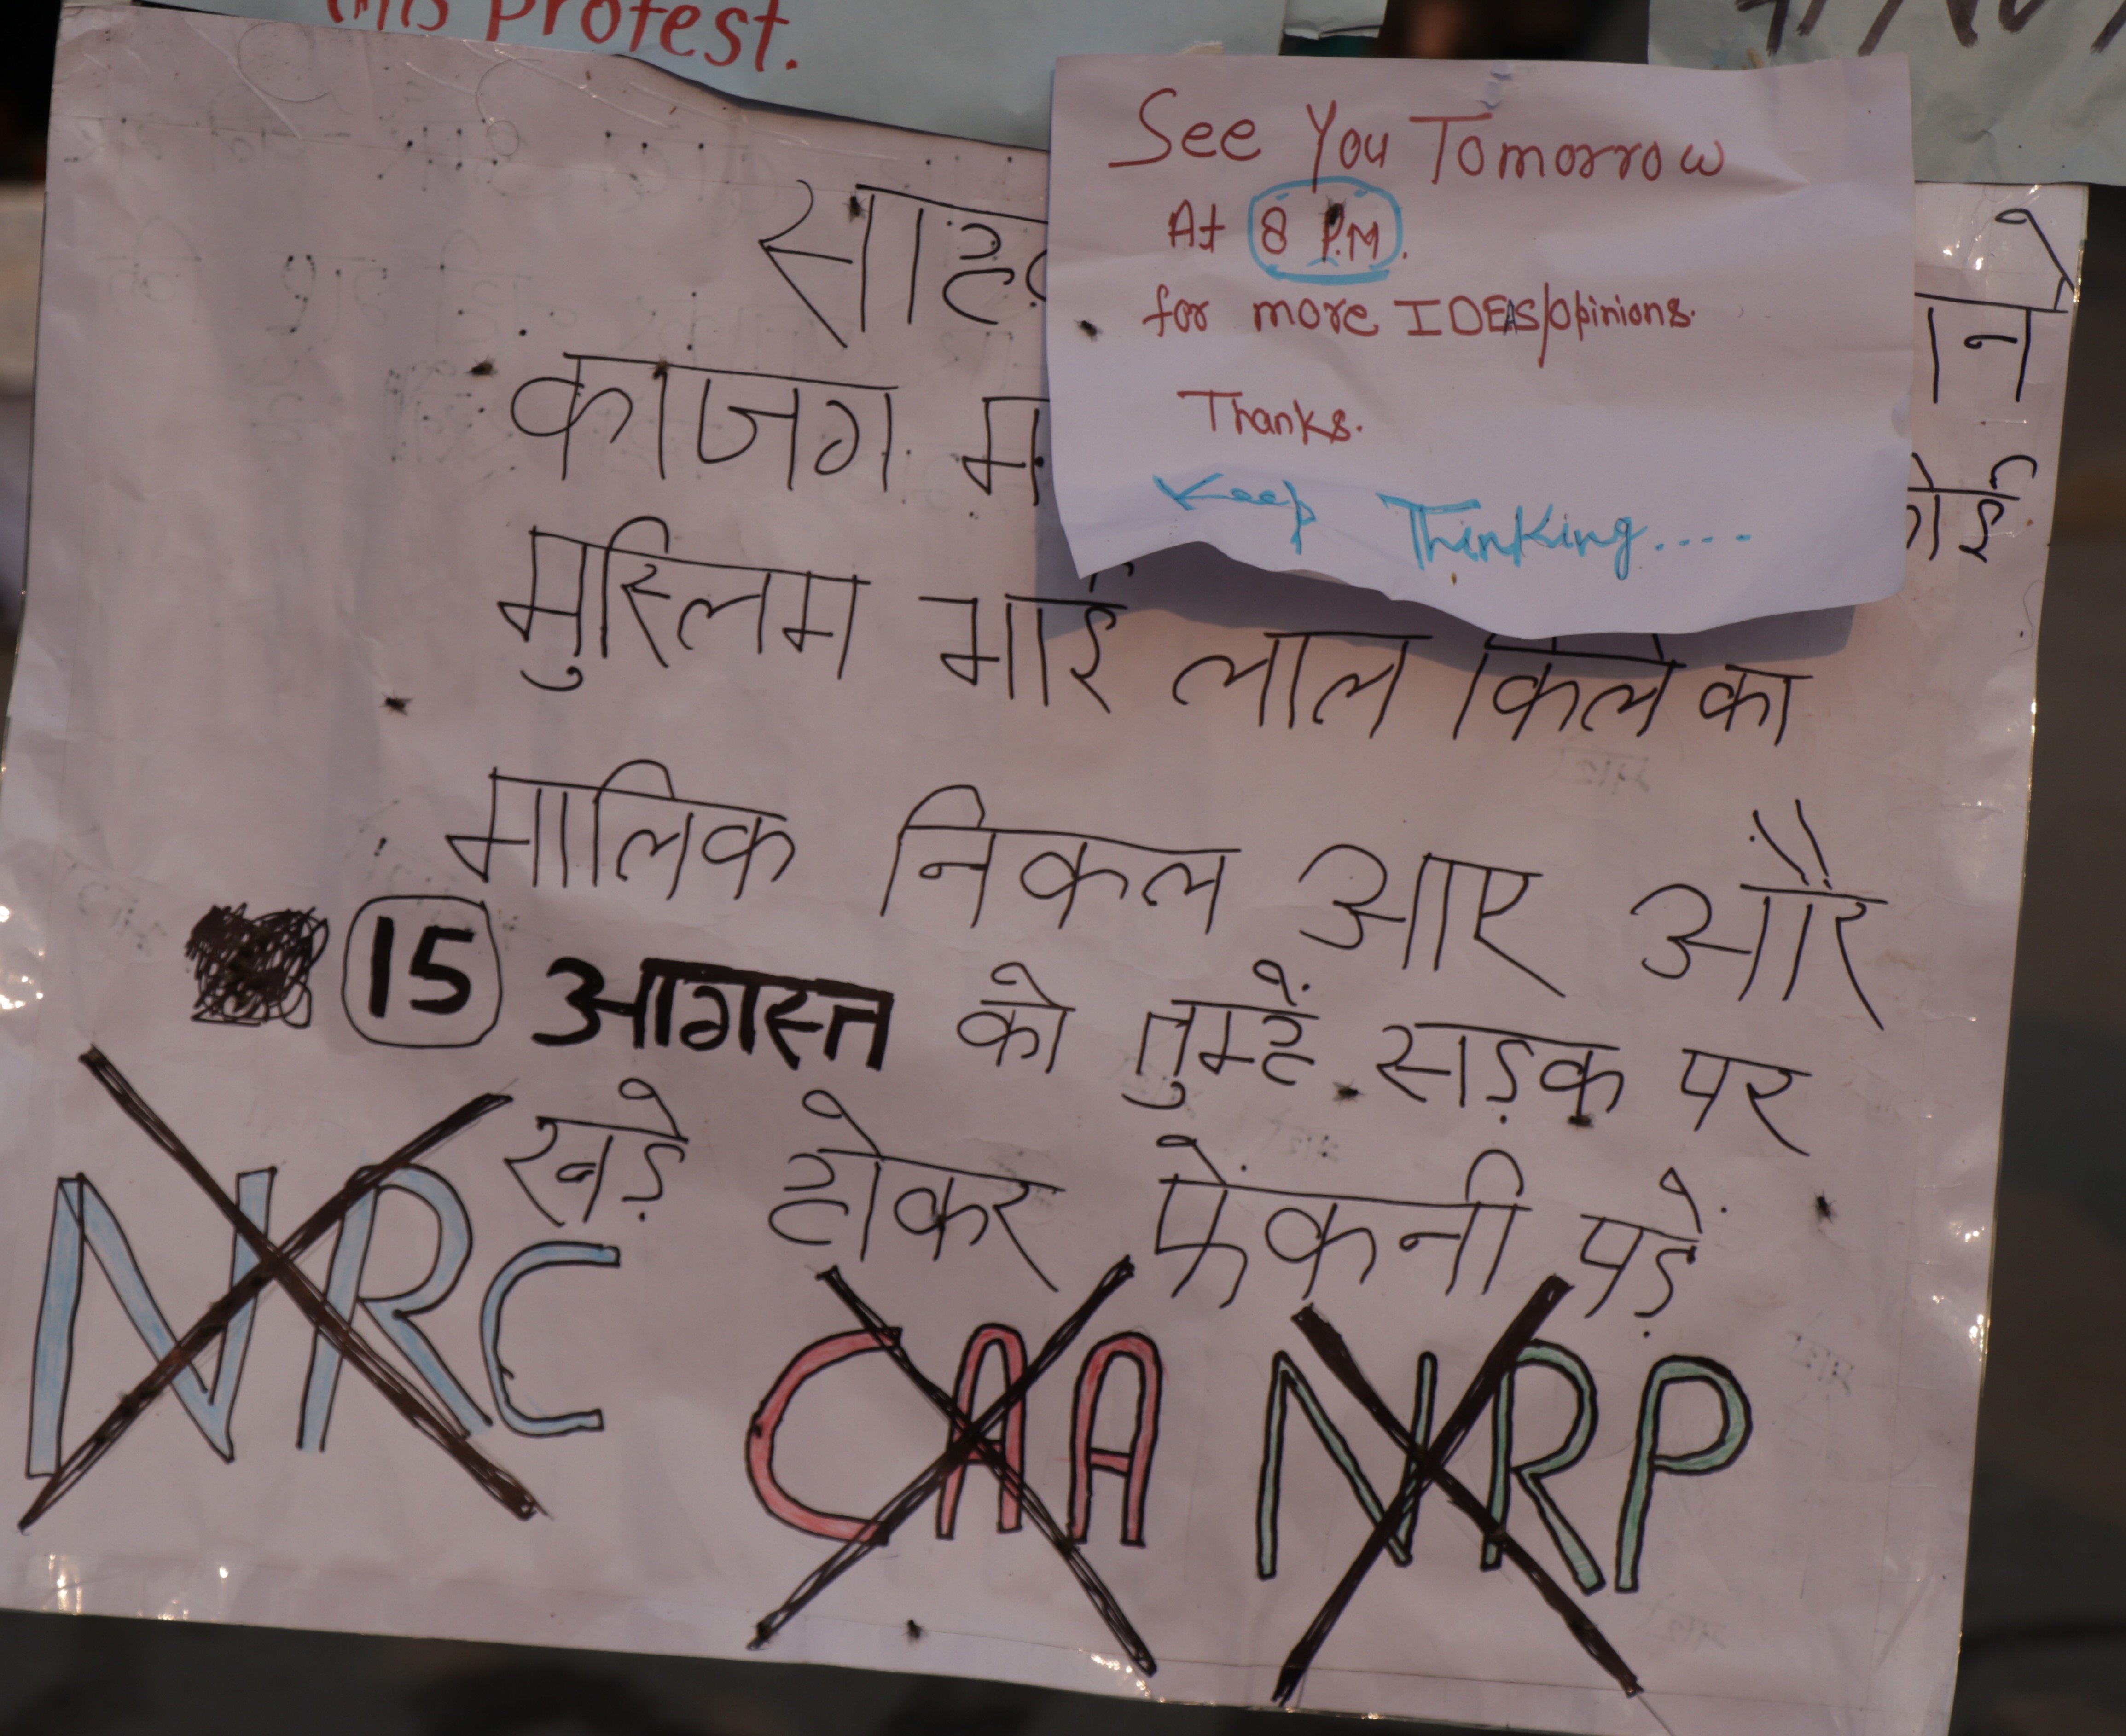 this Protest.
See You Tomorrow
At 8 P.M.
for more IDEAS/Opinions.
Thanks.
Keep Thinking....
काजग
मुस्लिम भाई लाल किले का
मालिक निकल आए और
15 आगस्त को तुम्हें सड़क पर
खड़े होकर फेंकनी पड़े
NRC
CAA NRP